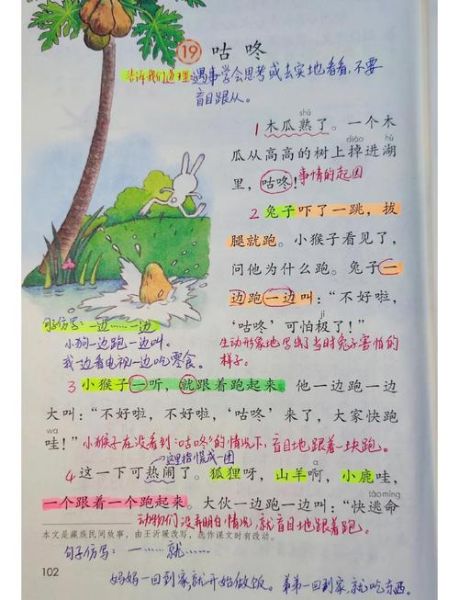 19 咕咚
告诉我们道理:遇事学会思考或去实地看看,不要
盲目跟从。
shú
1 木瓜熟了。一个木
diào hú
瓜从高高的树上掉进湖
里,咕咚!事情的起因
2 兔子吓了一跳,拔
腿就跑。小猴子看见了,
问他为什么跑。兔子一
边跑一边叫:“不好啦,
‘咕咚’可怕极了!”
生动形象地写出了当时兔子害怕的
样子。
句子仿写:一边……一边
小狗一边跑一边叫。
我一边看电视一边吃零食。
3 小猴子一听,就跟着跑起来。他一边跑一边
大叫:“不好啦,不好啦,‘咕咚’来了,大家快跑
wa
哇!”小猴子在没看到“咕咚”的情况下,盲目地跟着一块跑。
这里指慌成一团
a
4 这一下可热闹了。狐狸呀,山羊啊,小鹿哇,
táo mìng
一个跟着一个跑起来。大伙一边跑一边叫:“快逃命
动物们没弄明白情况,就盲目地跟着跑。
本文是藏族民间故事,由王沂暖改写,选作课文时有改动。
句子仿写:一……就……
102
妈妈一回到家,就开始做饭。弟弟一回到家,就吃东西。